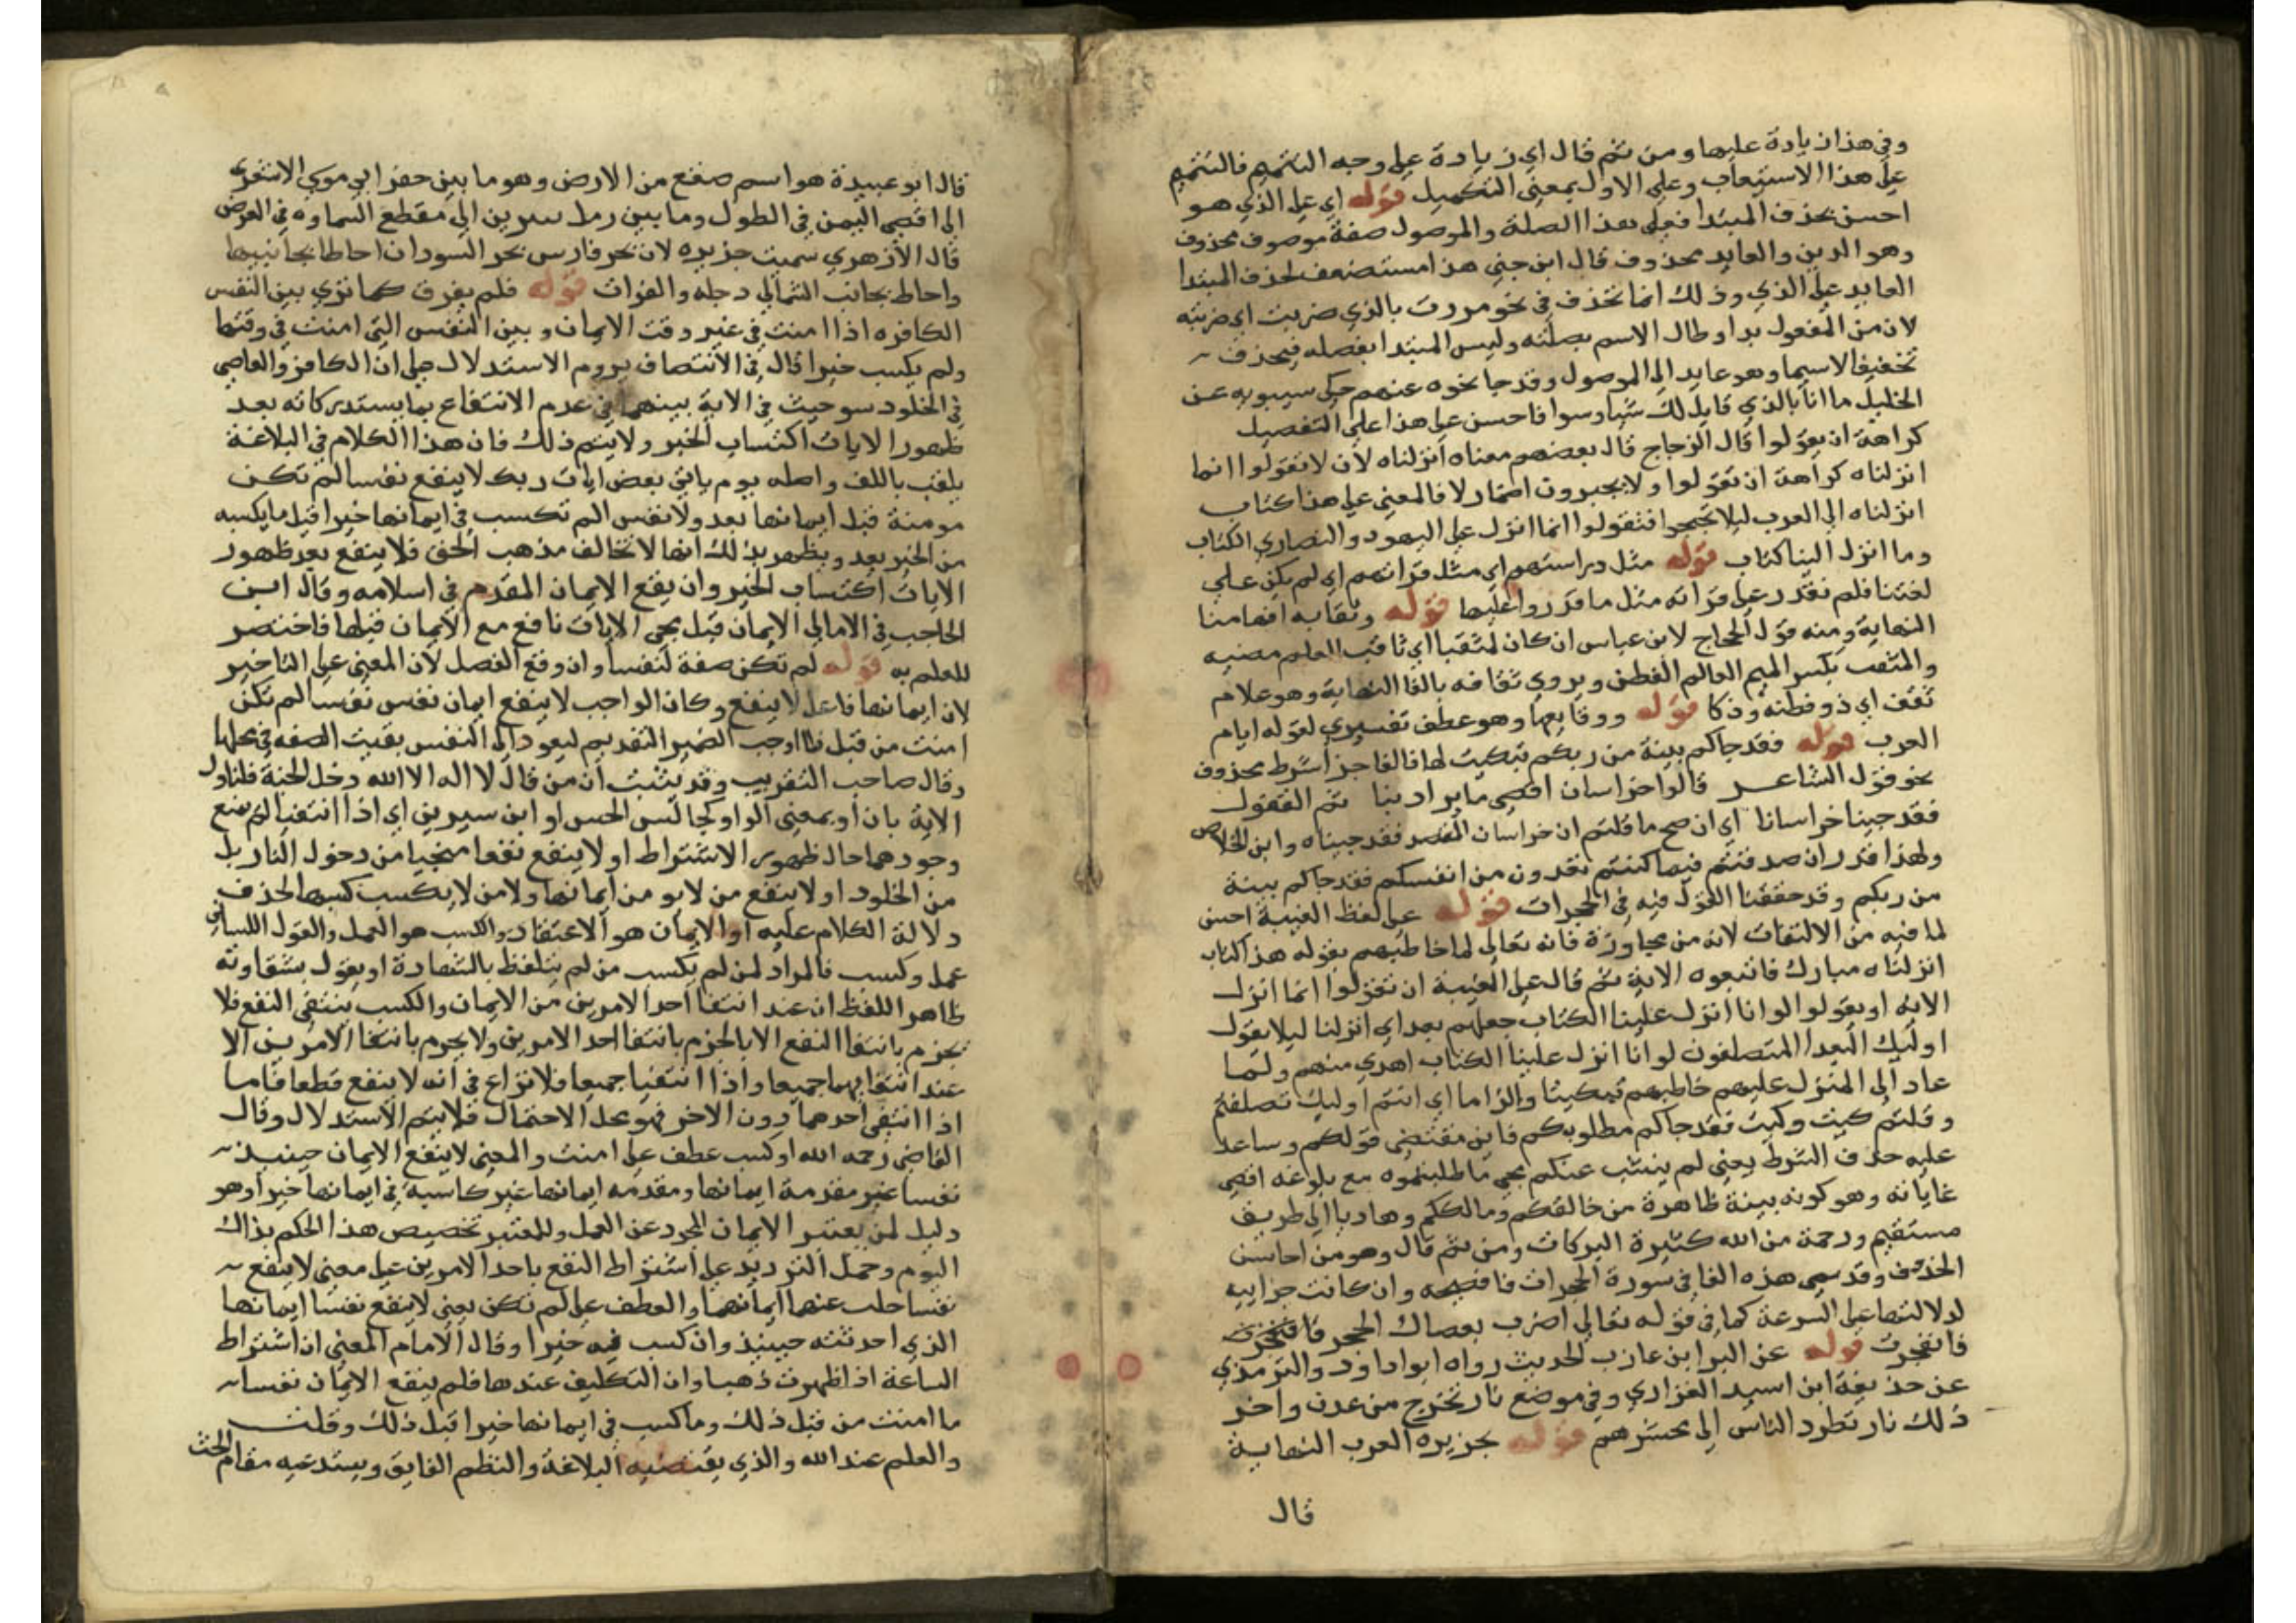 وفي هذا زيادة عليها ومن ثم قال اي زيادة على وجه التتميم فالتتميم
على هذا الاستيعاب وعلى الاول بمعنى التكميل قوله اي على الذي هو
احسن بحذف المبتدا فعلى هذا الصلة والموصول صفة موصوف محذوف
وهو الدين والعايد محذوف قال ابن جني هذا مستضعف لحذف المبتدا
العايد على الذي وذلك انما تحذف في نحو مررت بالذي ضربت اي ضربته
لان من المفعول بدا وطال الاسم بصلته وليس المبتدا بفضله فيحذف
تخفيفا لاسيما وهو عايد الى الموصول وقد جا نحوه عنهم حكى سيبويه عن
الخليل ما انا بالذي قايل لك شيا وسوا فاحسن على هذا على التفصيل
كراهة ان يقولوا قال الزجاج قال بعضهم معناه انزلناه لان لا تقولوا انما
انزلناه كراهة ان تقولوا ولا يجيزون اضمار لا فالمعنى على هذا كتاب
انزلناه الى العرب ليلا فتقولوا انما انزل على اليهود والنصاري الكتاب
وما انزل الينا كتاب قوله مثل دراستهم اي مثل قراتهم اي لم يكن على
لغتنا فلم نقدر على قراته مثل ما قدروا عليها قوله وثقابه افهامنا
النهاية ومنه قول الحجاج لابن عباس ان كان لمثقبا اي ثاقب العلم مضيه
والمثقب بكسر الميم العالم الفطن ويروي ثقافه بالفا النهاية وهو غلام
ثقف اي ذو فطنه وذكا قوله ووقايعها وهو عطف تفسيري لقوله ايام
العرب قوله فقد جاكم بينة من ربكم تبكيت لها فالفا جزا شرط محذوف
نحو قول الشاعر قالوا خراسان اقصى ما يراد بنا ثم القفول
فقد جينا خراسانا اي ان صح ما قلتم ان خراسان المقصد فقد جيناه واين الخلاص
ولهذا قدر ان صدقتم فيما كنتم تعدون من انفسكم فقد جاكم بينة
من ربكم وقد حققنا القول فيه في الحجرات قوله على لفظ الغيبة احسن
لما فيه من الالتفات لانه من مجاوزة فانه تعالى لما خاطبهم بقوله هذا كتاب
انزلناه مبارك فاتبعوه الاية ثم قال على الغيبة ان تقولوا انما انزل
الايه او يقولوا لو انا انزل علينا الكتاب جعلهم بعدا اي انزلنا ليلا يقول
اوليك البعدا المتصلفون لو انا انزل علينا الكتاب اهدي منهم ولما
عاد الى المنزل عليهم خاطبهم تبكيتا والزاما اي انتم اوليك تصلفتم
وقلتم كيت وكيت فقد جاكم مطلوبكم فاين مقتضى قولكم وساعد
عليه حذف الشرط يعني لم يثب عنكم مجي ما طلبتموه مع بلوغه اقصى
غاياته وهو كونه بينة ظاهرة من خالقكم ومالككم وهاديا الى طريق
مستقيم ورحمة من الله كثيرة البركات ومن ثم قال وهو من احاسن
الحذوف وقد سمى هذه الفا في سورة الحجرات فا فصيحه وان كانت جزاييه
لدلالتها على السرعة كما في قوله تعالى اضرب بعصاك الحجر فانفجرت
فانفجرت قوله عن البرا ابن عازب الحديث رواه ابو داود والترمذي
عن حذيفة ابن اسيد الغزاري وفي موضع نار تخرج من عدن واخر
ذلك نار تطرد الناس الى محشرهم قوله جزيره العرب النهاية
قال
قال ابو عبيدة هو اسم صقع من الارض وهو ما بين حفر ابي موسي الاشعري
الى اقصى اليمن في الطول وما بين رمل يبرين الى مقطع السماوه في العرض
قال الازهري سميت جزيره لان بحر فارس بحر السودان احاطا بجانبيها
واحاط بجانب الشمالي دجله والفرات قوله فلم يفرق كما ترى بين النفس
الكافره اذا امنت في غير وقت الايمان وبين النفس التي امنت في وقتها
ولم يكسب خيرا قال في الانتصاف يروم الاستدلال على ان الكافر والعاصي
في الخلود سو حيث في الاية بينهما في عدم الانتفاع بما يستدركانه بعد
ظهور الايات اكتساب الخير ولا يتم ذلك فان هذا الكلام في البلاغة
يلقب باللف واصله يوم ياتي بعض ايات ربك لا ينفع نفسا لم تكن
مومنة قبل ايمانها بعد ولا نفس الم تكسب في ايمانها خيرا قبل ما يكسبه
من الخير بعد ويظهر بذلك انها لا تخالف مذهب الحق فلا ينفع بعد ظهور
الايات اكتساب الخير وان ينفع الايمان المقدم في اسلامه وقال ابن
الحاجب في الامالي الايمان قبل مجي الايات نافع مع الايمان قبلها فاختصر
للعلم به قوله لم تكن صفة لنفسا وان وقع الفصل لان المعنى على التاخير
لان ايمانها فاعل لا ينفع وكان الواجب لا ينفع ايمان نفس نفسا لم تكن
امنت من قبل فاا وجب الضمير التقديم ليعود الى النفس بقيت الصفه في محلها
وقال صاحب التقريب وقد يثبت ان من قال لا اله الا الله دخل الجنة فلتاول
الاية بان او بمعنى الواو كجالس الحسن او ابن سيرين اي اذا انتفيا لم ينفع
وجودهما حال ظهور الاشتراط او لا ينفع نفعا منجيا من دخول النار بل
من الخلود او لا ينفع من لا يو من ايمانها ولا من لا يكسب كسبها لحذف
دلالة الكلام عليه او الايمان هو الاعتقاد والكسب هو العمل والقول اللساني
عمل وكسب فالمراد لمن لم يكسب من لم يتلفظ بالشهادة او يقول بشقاوته
ظاهر اللفظ ان عند انتفا احد الامرين من الايمان والكسب ينتفي النفع فلا
يجزم بانتفا النفع الا بالجزم بانتفا احد الامرين ولا يجزم بانتفا الامرين الا
عند انتفايهما جميعا واذا انتفيا جميعا فلا نزاع في انه لا ينفع قطعا فاما
اذا انتفى احدهما دون الاخر فهو محل الاحتمال فلا يتم الاستدلال وقال
القاضي رحمه الله او كسب عطف على امنت والمعنى لا ينفع الايمان حينيذ
نفسا غير مقدمة ايمانها ومقدمه ايمانها غير كاسبة في ايمانها خيرا وهو
دليل لمن يعتبر الايمان المجرد عن العمل وللمعتبر تخصيص هذا الحكم بذاك
اليوم وحمل الترديد على اشتراط النفع باحد الامرين على معنى لا ينفع
نفسا خلت عنهما ايمانهما والعطف على لم تكن يعني لا ينفع نفسا ايمانها
الذي احدثته حينيذ وان كسب فيه خيرا وقال الامام المعني ان اشتراط
الساعة اذا ظهرت ذهبا وان التكليف عندها فلم ينفع الايمان نفسا
ما امنت من قبل ذلك وما كسب في ايمانها خيرا قبل ذلك وقلت
والعلم عند الله والذي يقتضيه البلاغة والنظم الفايق ويستدعيه مقام الحث